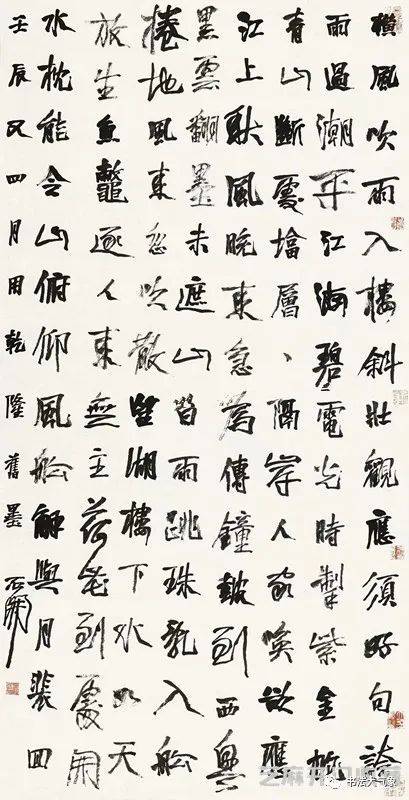 橫風吹雨入樓斜壯觀應須好句誇
雨過潮平江海碧電光時掣紫金蛇
青山斷處塔層、隔岸人家喚欲應
江上秋風晚來急為傳鐘皷到西興
黑雲翻墨未遮山白雨跳珠亂入船
捲地風來忽吹散望湖樓下水如天
放生魚鼈逐人來無主荷花到處開
水枕能令山俯仰風船解與月裴回
壬辰又四月用乾隆舊墨 石開
书法大气象